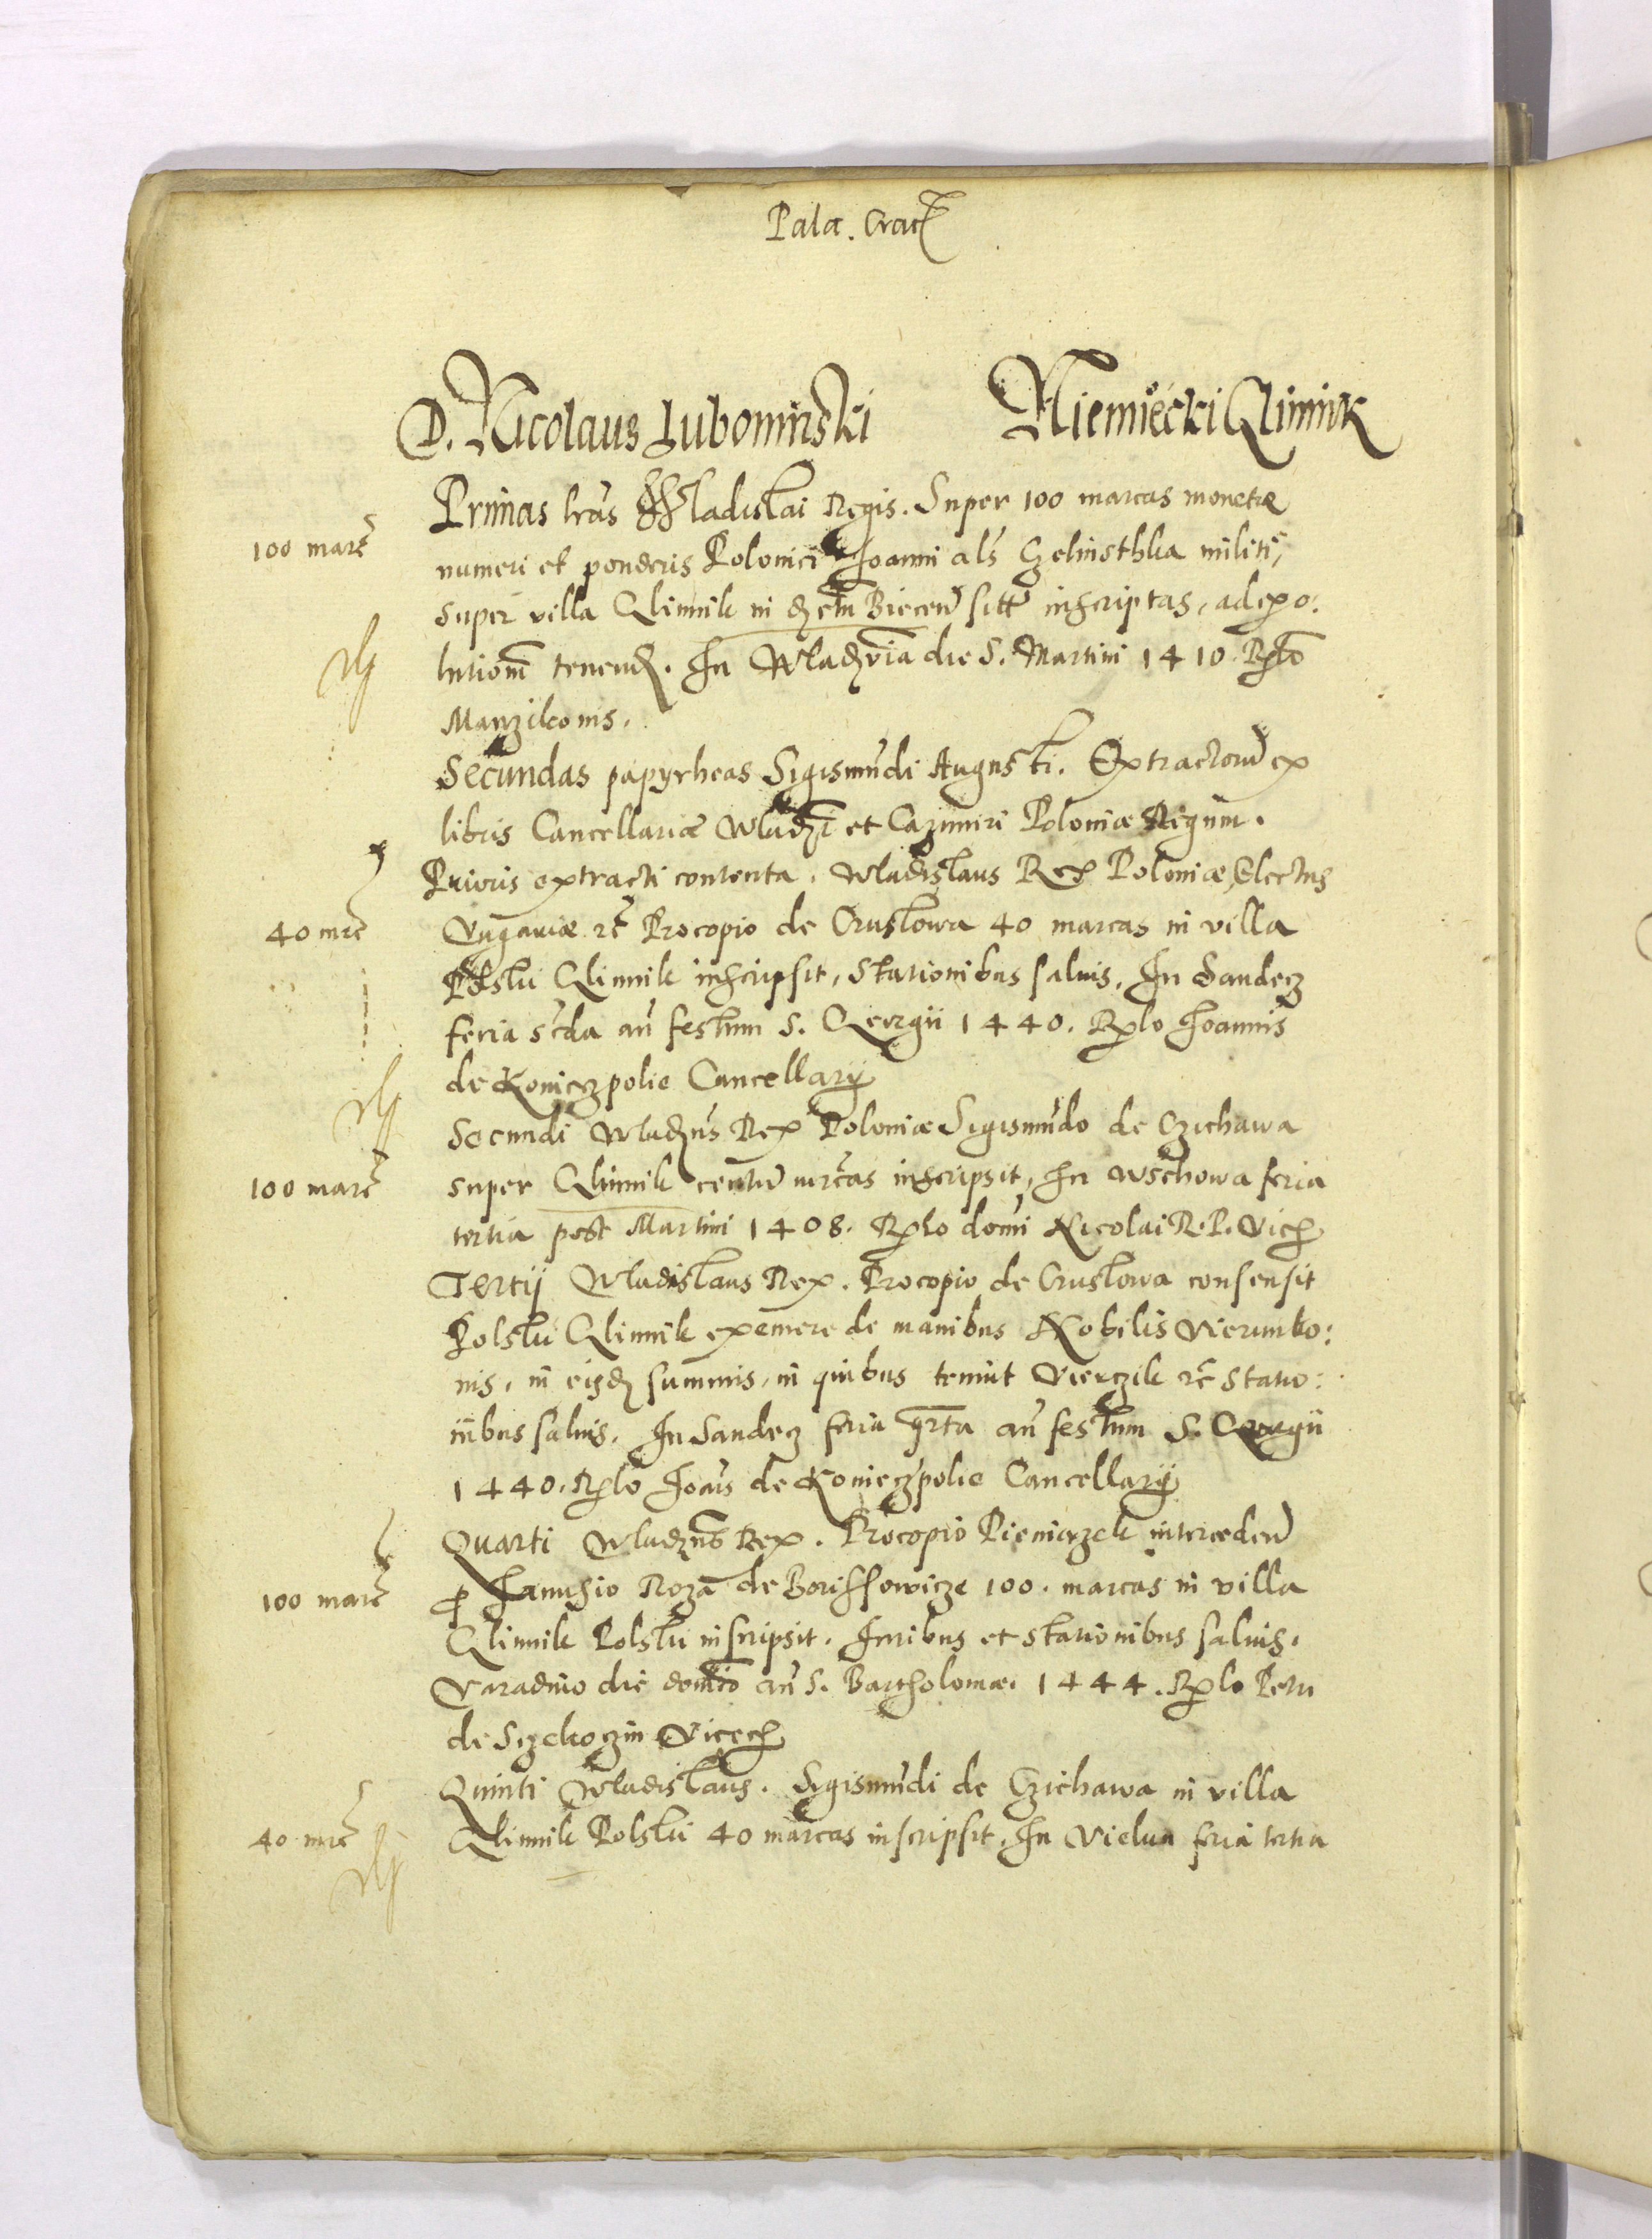 Pala. Crac
D. Nicolaus Lubomirski Niemiecki Glinnik
Primas lras Wladislai Regis. Super 100 marcas monetæ
100 marc
numeri et ponderis Polonici Joanni als Czelusthka militi,
super villa Glinnik in Biecen sitt inscriptas, ad expo:
lutionē tenend. In die S. Martini 1410. Rlo
Manzikonis.
Secundas papyrheas Sigismūdi Augusti. Extractorū ex
libris Cancellariæ Wladzi et Cazimiri Poloniæ Regum.
Prioris extracti contenta. Wladislaus Rex Poloniæ, Electus
40 mrc
Vngariæ rc Procopio de Crustowa 40 marcas in villa
Glinnik inscripsit, stationibus saluis, In Sandecz
feria scda an festum S. Georgii 1440. Rlo Joannis
de Konieczpolie Cancellarij
Secundi Wladzus Rex Poloniæ Sigismūdo de Czichawa
100 marc
super Glinnik centū mrcas inscripsit, In Wschowa feria
tertia post Martini 1408. Rlo domi Nicolai R. P. Vic
Tertij Wladislaus Rex. Procopio de Crustowa consensit
Polski Glinnik eximere de manibus Nobilis Vierunko:
nis, in eisd summis, in quibus tenuit Vierczik rc statio:
nibus saluis. In Sandecz feria qrta an festum S. Georgii
1440. Rlo Joais de Konieczpolie Cancellarij
Quarti Wladzus Rex. Procopio Pieniążek interceden
100 marc
p Janusio Roza de Borissowicze 100. marcas in villa
Glinnik Polski inscripsit. Juribus et stationibus saluis.
Varadino die domico an S. Bartholomæ. 1444. Rlo Petri
de Szekoczin Vicec
Quinti Wladislaus. Sigismūdi de Czichawa in villa
40 mrc
Glinnik Polski 40 marcas inscripsit, In Vielun feria tertia